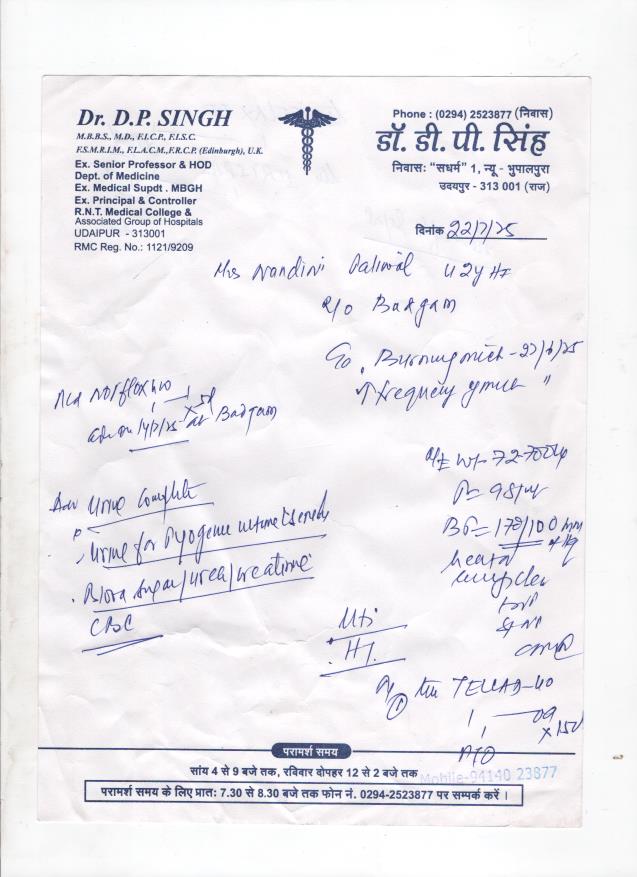 Dr. D.P. SINGH
M.B.B.S., M.D., F.I.C.P., F.I.S.C.
F.S.M.R.I.M., F.L.A.C.M.,F.R.C.P. (Edinburgh), U.K.
Ex. Senior Professor & HOD
Dept. of Medicine
Ex. Medical Supdt . MBGH
Ex. Principal & Controller
R.N.T. Medical College &
Associated Group of Hospitals
UDAIPUR - 313001
RMC Reg. No.: 1121/9209
Phone : (0294) 2523877 (निवास)
डॉ. डी. पी. सिंह
निवासः "सधर्म" 1, न्यू - भुपालपुरा
उदयपुर - 313 001 (राज)
दिनांक 22/7/25
Mrs Nandini Paliwal
Badgam
Burning mict -
↑ frequency
Norflox 400
Badgam
Adv Urine Complete
Urine for Pyogenic culture & sens
Blood Sugar/Urea/Creatinine
CBC
O/E Wt - 72.700
P = 98/m
BP = 170/100 mm
Heart
UTI
HT
① TELLAD-40
PTO
परामर्श समय
सांय 4 से 9 बजे तक, रविवार दोपहर 12 से 2 बजे तक
Mobile-94140 23877
परामर्श समय के लिए प्रातः 7.30 से 8.30 बजे तक फोन नं. 0294-2523877 पर सम्पर्क करें ।